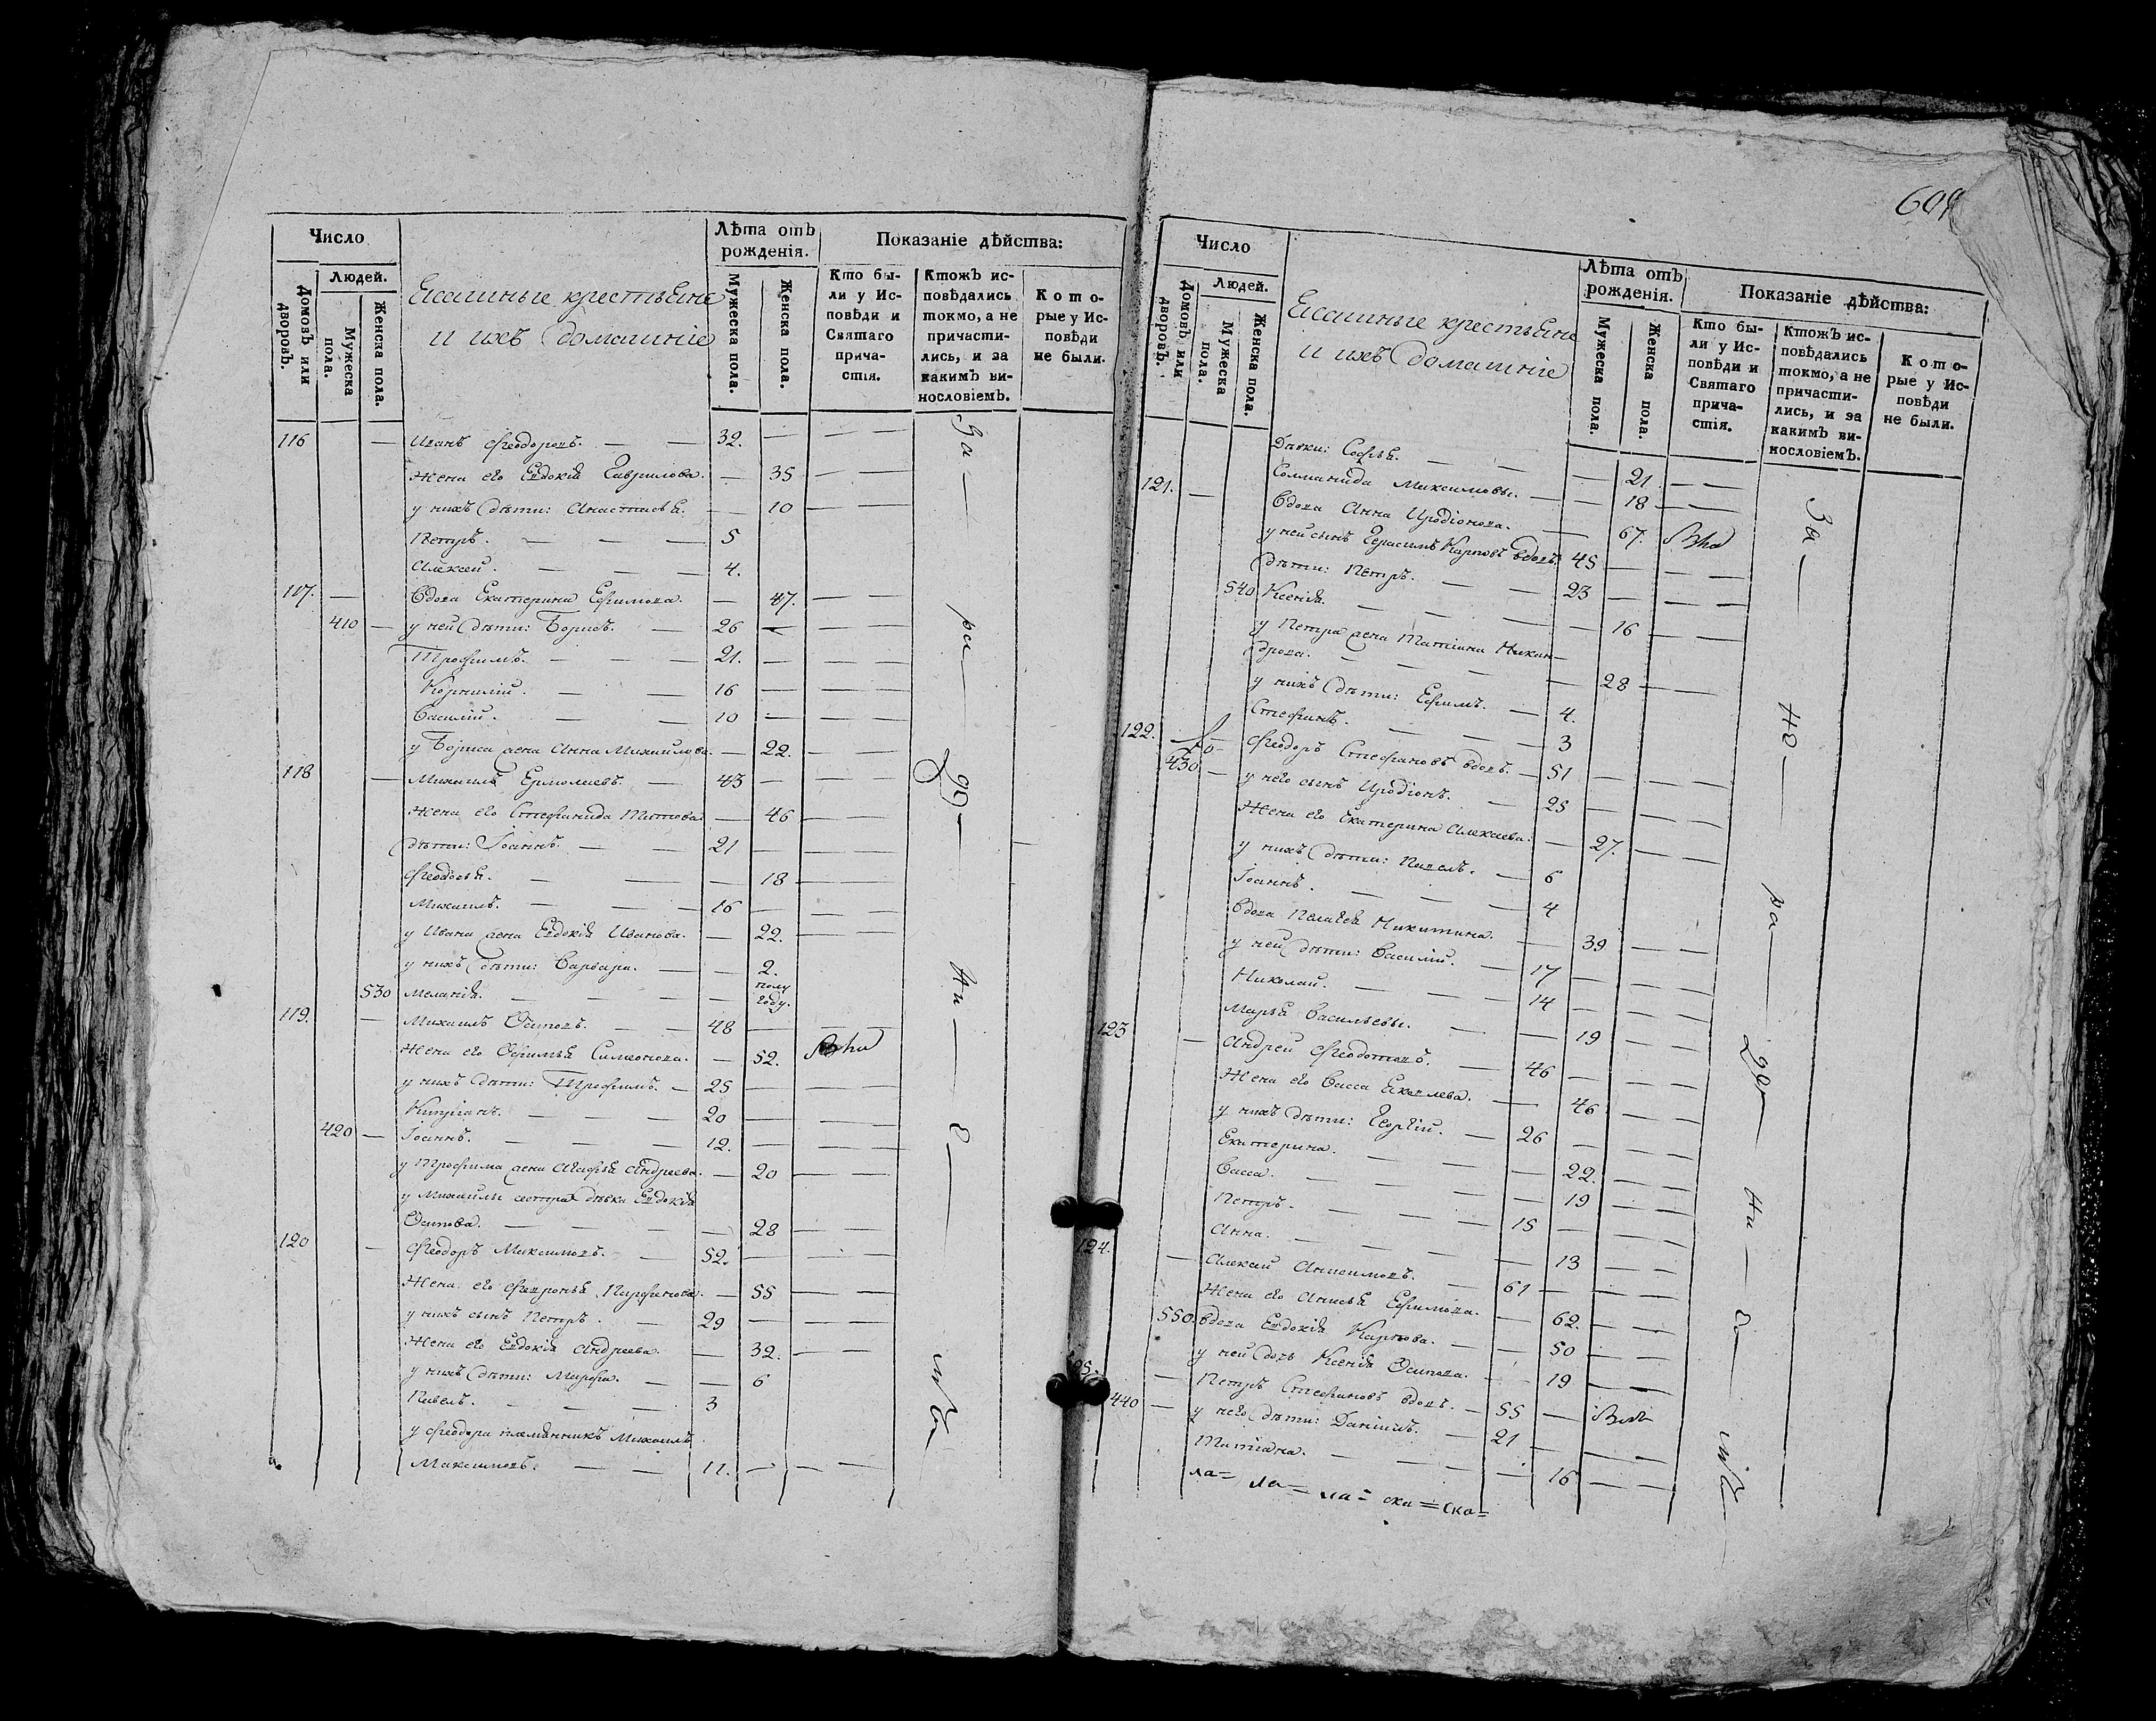 Число
Людей.
Домовъ или дворовъ.
Мужеска пола.
Женска пола.
Ясашные крестьяне
и ихъ домашніе
Лѣта отъ рожденія.
Мужеска пола.
Женска пола.
Показаніе дѣйства:
Кто бы-
ли у Ис-
повѣди и
Святаго
прича-
стія.
Ктожъ ис-
повѣдались
токмо, а не
причасти-
лись, и за
какимъ ви-
нословіемъ.
Кото-
рые у Ис-
повѣди
не были.
116 — Иванъ Ѳеодоровъ. — — 32. — — —
Жена его Евдокія Гаврилова. — 35 — —
у нихъ дѣти: Анастасья. — 10 — —
Петръ. — — — 5
Алексей. — — — 4.
117. — Вдова Екатерина Ефимова. — 47. — —
410 — у ней дѣти: Борисъ. — 26 — — —
Трофимъ. — — — 21. — — —
Корнилій. — — 16 — — —
Василій. — — 10 — — —
у Бориса жена Анна Михайлова. — 22. — —
118 — Михаилъ Ермолаевъ. — 43 — — —
Жена его Стефанида Титова. — 46 — —
дѣти: Іоаннъ. — — 21 — — —
Ѳеодосья. — — — 18 — —
Михаилъ. — — — 16 — — —
у Ивана жена Евдокія Иванова. — 22. — —
у нихъ дѣти: Варвара. — — 2.
530 Меланія. — — — — полу
году.
119. — Михаилъ Осиповъ. — — 48 — — —
Жена его Ефимья Симеонова. — 52.
у нихъ дѣти: Трофимъ. — 25 — — —
Кипріанъ. — — — 20 — — —
420 — Іоаннъ. — — — 12. — — —
у Трофима жена Агафья Андреева. — 20 — —
у Михаилы сестра дѣвка Евдокія
Осипова. — — — — 28 — —
120 — Ѳеодоръ Максимовъ. — 52. — — —
Жена его Ѳевронья Парфенова. — 55 — —
у нихъ сынъ Петръ. — 29 — — —
Жена его Евдокія Андреева. — 32. — —
у нихъ дѣти: Марфа. — — 6
Павелъ. — — — 3
у Ѳеодора племянникъ Михаилъ
Максимовъ. — — 11. — — —
За — ра — — ни — е — мъ
609
Число
Людей.
Домовъ или дворовъ.
Мужеска пола.
Женска пола.
Ясашные крестьяне
и ихъ домашніе
Лѣта отъ рожденія.
Мужеска пола.
Женска пола.
Показаніе дѣйства:
Кто бы-
ли у Ис-
повѣди и
Святаго
прича-
стія.
Ктожъ ис-
повѣдались
токмо, а не
причасти-
лись, и за
какимъ ви-
нословіемъ.
Кото-
рые у Ис-
повѣди
не были.
Дѣвки: Софья. — — — 21 — —
Соломанида Максимовы. — — 18 — —
121. — Вдова Анна Иродіонова. — 67.
у ней сынъ Герасимъ Карповъ вдовъ. 45 — — —
дѣти: Петръ. — — 23 — — —
540 Ксенія. — — — — 16 — —
у Петра жена Татіана Никан-
дрова. — — — — 28 — —
у нихъ дѣти: Ефимъ. — 4.
Стефанъ. — — — 3
122. Ѳеодоръ Стефановъ вдовъ. — 51 — — —
430 — у него сынъ Иродіонъ. — 25 — — —
Жена его Екатерина Алексеева. — 27. — —
у нихъ дѣти: Павелъ. — 6
Іоаннъ. — — — 4
Вдова Пелагея Никитина. — 39 — —
у ней дѣти: Василій. — 17 — — —
Николай. — — — 14 — — —
Марья Васильевы. — — 19 — —
123 — Андрей Ѳеодотовъ. — 46 — — —
Жена его Васса Яковлева. — 46 — —
у нихъ дѣти: Георгій. — 26 — — —
Екатерина. — — — — 22. — —
Васса. — — — — 19 — —
Петръ. — — — 15 — — —
Анна. — — — — 13 — —
124. — Алексей Анисимовъ. — 61 — — —
Жена его Анисья Ефимова. — 62. — —
550. Вдова Евдокія Карпова. — — 50 — —
у ней дочь Ксенія Осипова. — 19 — —
125. — Петръ Стефановъ вдовъ. — 55 —
440 — у него дѣти: Даніилъ. — 21 — — —
Татіана. — — — — 16 — —
За — но — ра — — ни — е — мъ
ла= ла= ла= ска= ска=